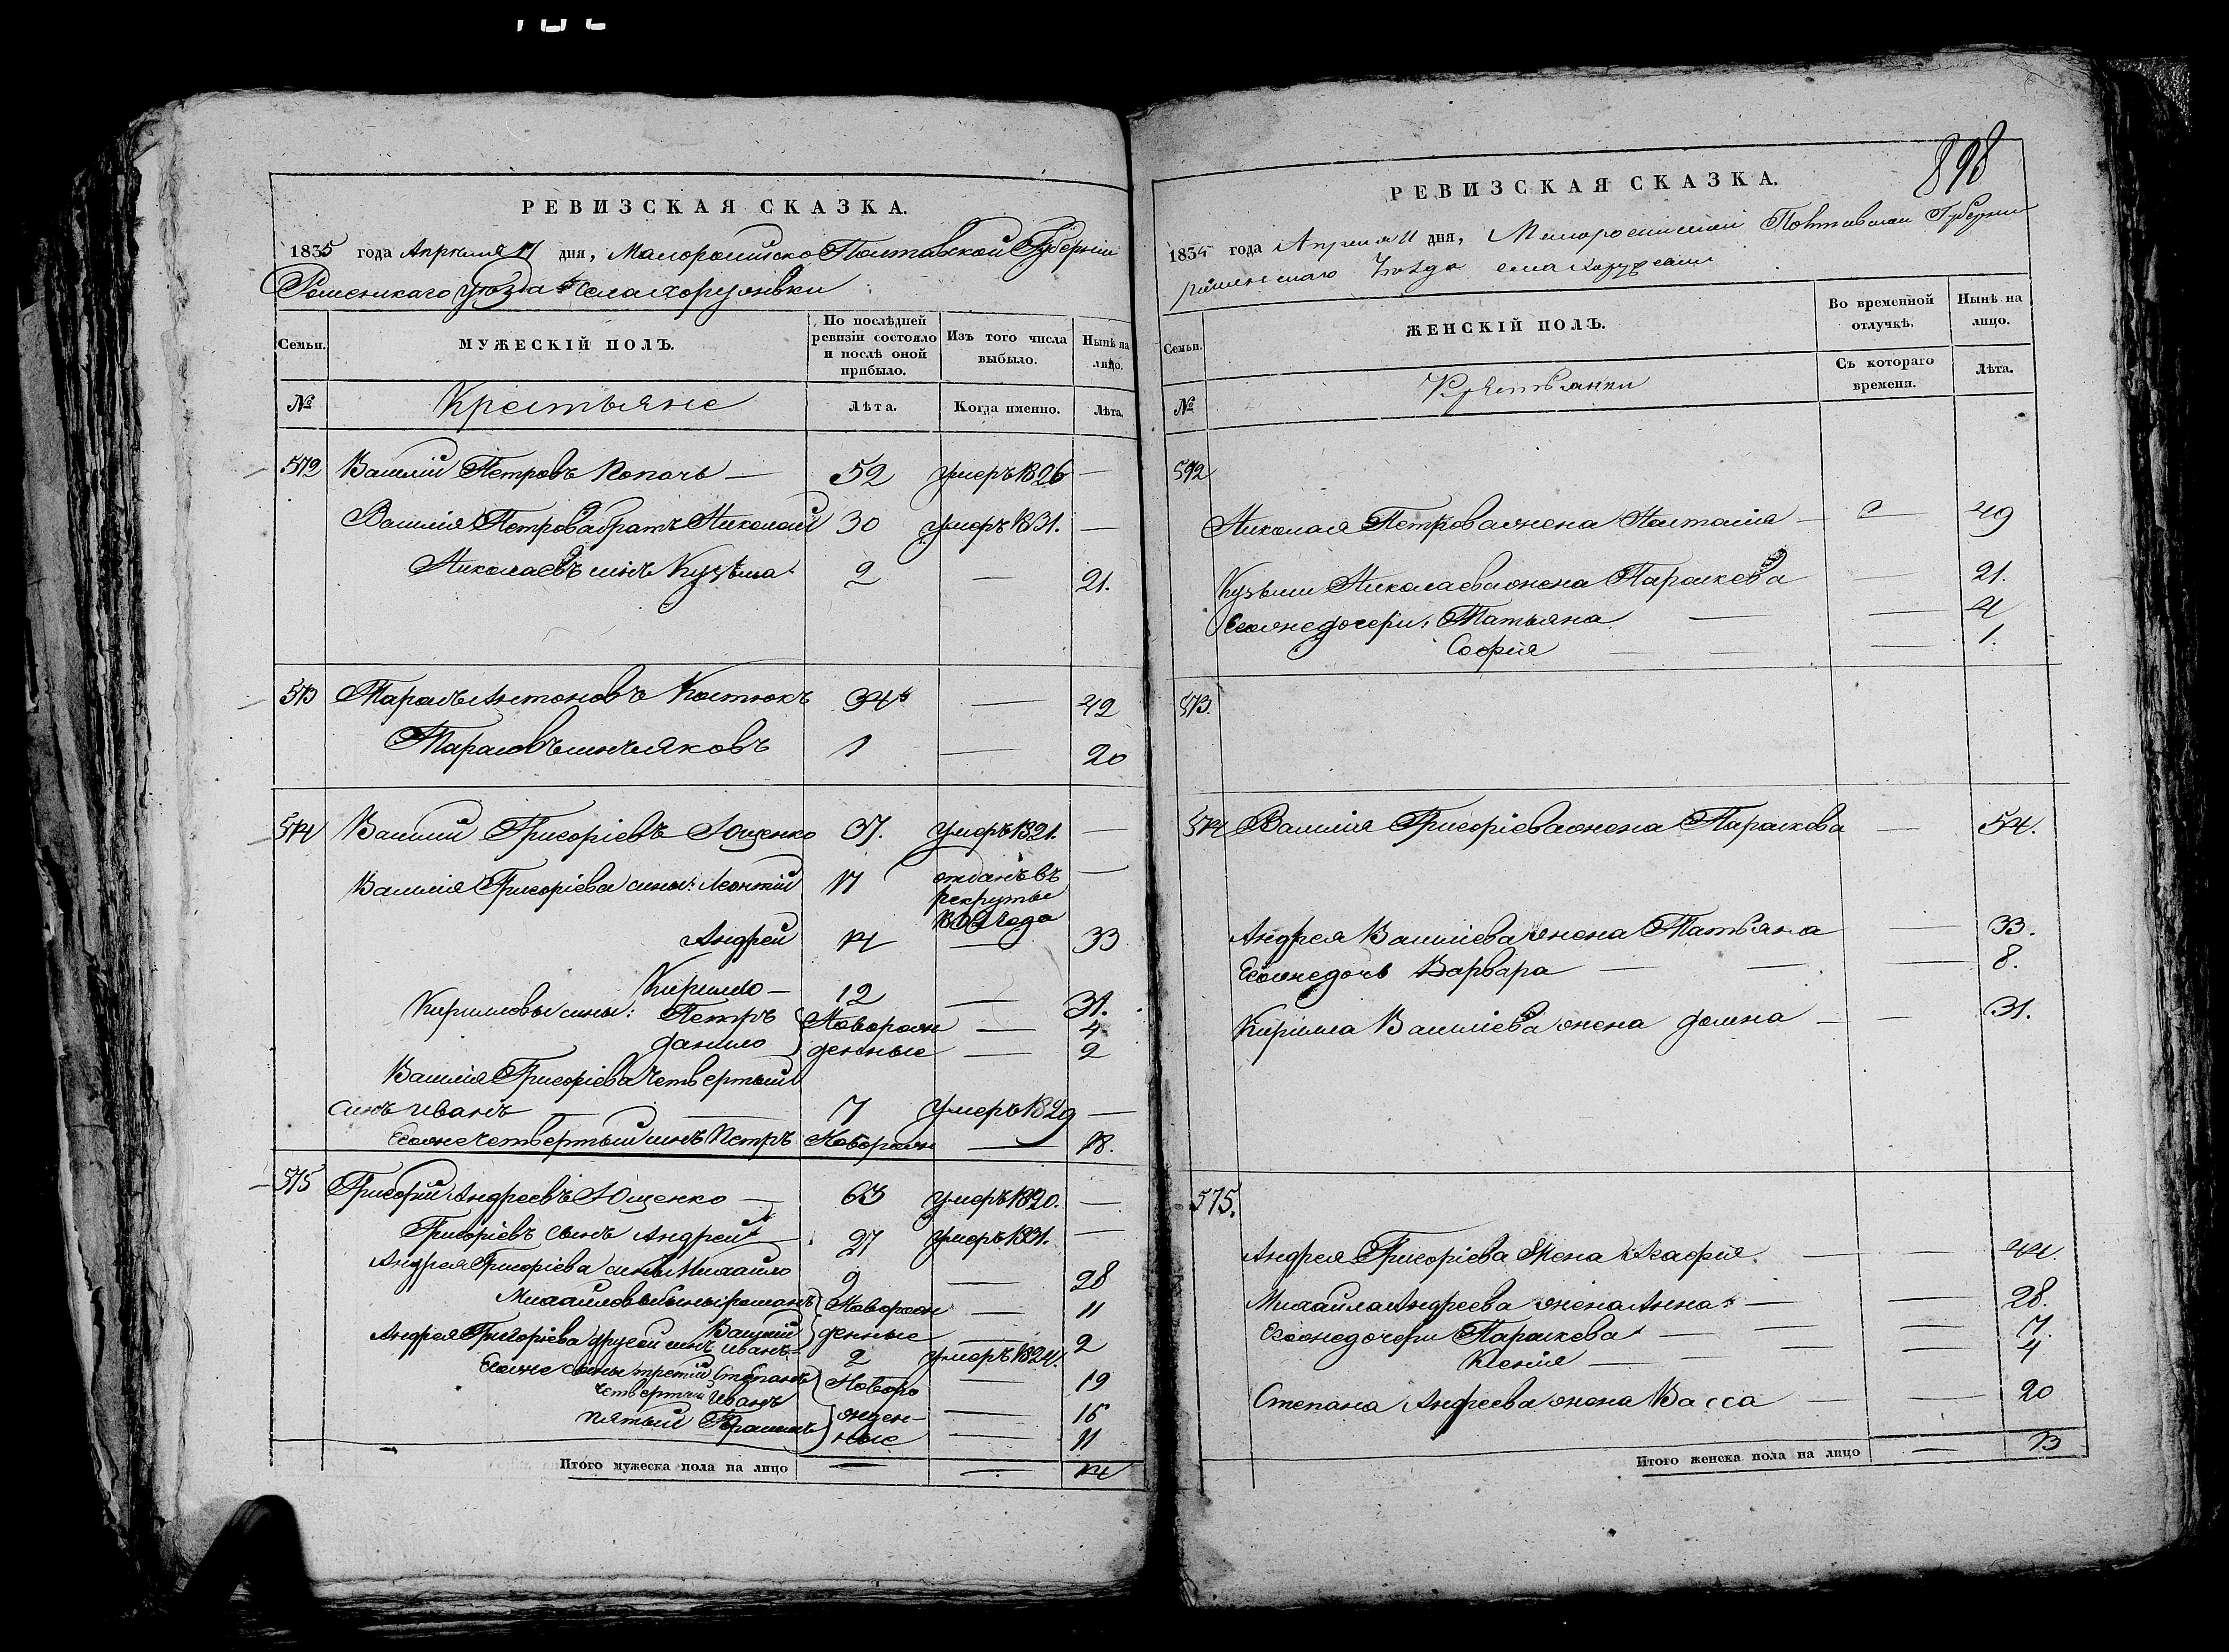 РЕВИЗСКАЯ СКАЗКА.
1835 года Апреля 11 дня, Малоросийско Полтавской Губернии
Роменскаго уезда Села Хоружевки
Семьи. МУЖЕСКІЙ ПОЛЪ. По послѣдней ревизіи состояло и послѣ оной прибыло. Изъ того числа выбыло. Нынѣ на лицо.
№ Крестьяне Лѣта. Когда именно. Лѣта.
572 Василий Петровъ Копачъ — 52 умеръ 1826 —
Василия Петрова братъ Николай 30 умеръ 1831. —
Николаевъ синъ Кузьма 2 — 21.
573 Тарасъ Антоновъ Костюкъ — 42
Тарасовъ синъ Яковъ 1 — 20
574 Василий Григоріевъ Ющенко 37. умеръ 1821. —
Василия Григоріева сины: Леонтий 17 отданъ въ —
рекруты
года
Андрей 14 — 33
Кирило — 12 — 31.
Кириловы сины: Петръ Новорож — 4
данило денные — 2
Василия Григоріева четвертый
синъ иванъ — — 7 Умеръ 1829 —
Егоже четвертый синъ Петръ Новорож — 18.
575 Григорий Андреевъ Ющенко — 63 умеръ 1820. —
Григоріевъ сынъ Андрей 27 умеръ 1831. —
Андрея Григоріева сины Михайло 9 — 28
Михайловы сыны романъ Новорож — 11
Василий денные — 2
Андрея Григоріева другой синъ иванъ 2 умеръ 1824.
Егоже сыны третий Степанъ Новоро — 19
четвертый Иванъ жден- — 15
пятый Герасимъ ные — 11
Итого мужеска пола на лицо — — 14
898
РЕВИЗСКАЯ СКАЗКА.
1835 года Апреля 11 дня, Малоросийской Полтавской Губернии
роменскаго уезда села
Семьи. ЖЕНСКІЙ ПОЛЪ. Во временной отлучкѣ. Нынѣ на лицо.
№ Крестьянки Съ котораго времени. Лѣта.
572
Николая Петрова жена Настасия — — 49
Кузьмы Николаева жена Параскева — 21.
Егоже дочери: Татьяна — — 4
София — — — 1.
573.
574 Василия Григоріева жена Параскева — 54.
Андрея Василиева жена Татьяна — 33.
Егоже дочь Варвара — — — 8.
Кирила Василиева жена домна — — 31.
575.
Андрея Григоріева Жена Агафия — 44.
Михайла Андреева жена Анна — — 28.
Егоже дочери Параскева — — 7.
Ксения — — — 4
Степана Андреева жена Васса — — 20
Итого женска пола на лицо — 13